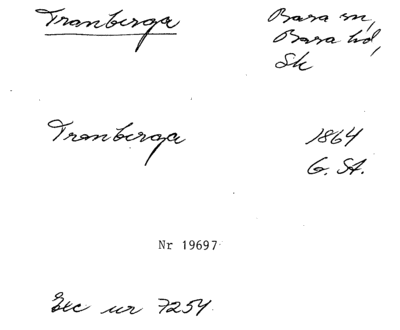 Tranberga Bara sn,
Bara hd,
Sk
Tranberga 1864
G. St.
Nr 19697
Exc nr 7254